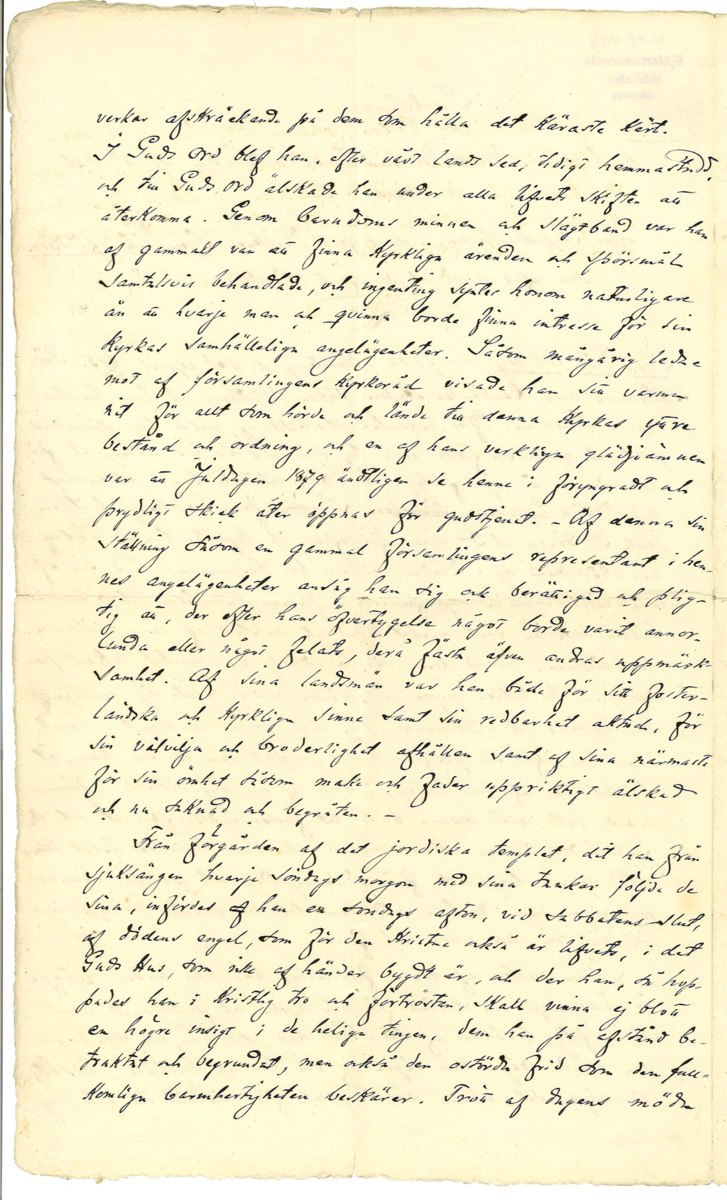 verkar afskräckande på dem som hålla det käraste kärt.
I Guds ord blef han, efter vårt lands sed, tidigt hemmastadd,
och till Guds ord älskade han under alla lifvets skiften att
återkomma. Genom barndoms minnen och slägtband var han
af gammalt van att finna kyrkliga ärenden och spörsmål
samtalsvis behandlade, och ingenting syntes honom naturligare
än att hvarje man och qvinna borde finna intresse för sin
kyrkas samhälleliga angelägenheter. Såsom mångårig leda-
mot af församlingens kyrkoråd visade han sitt varma
nit för allt som hörde och lände till denna kyrkas yttre
bestånd och ordning, och en af hans verkliga glädjeämnen
var att Juldagen 1879 ändtligen se henne i föryngradt och
prydligt skick åter öppnas för gudstjenst. – Af denna sin
ställning såsom en gammal församlingens representant i hen-
nes angelägenheter ansåg han sig ock berättigad och plig-
tig att, der efter hans öfvertygelse något borde varit annor-
lunda eller något felats, derå fästa äfven andras uppmärk-
samhet. Af sina landsmän var han både för sitt foster-
ländska och kyrkliga sinne samt sin redbarhet aktad, för
sin välvilja och broderlighet afhållen samt af sina närmaste
för sin ömhet såsom make och fader uppriktigt älskad
och nu saknad och begråten. –
Från förgården af det jordiska templet, dit han från
sjuksängen hvarje söndags morgon med sina tankar följde de
sina, infördes han en söndags afton, vid sabbatens slut,
af dödens engel, som för den kristne också är lifvets, i det
Guds Hus, som icke af händer bygdt är, och der han, så hop-
pades han i kristlig tro och förtröstan, skall vinna ej blott
en högre insigt i de heliga tingen, dem han på afstånd be-
traktat och begrundat, men också den ostörda frid som den full-
komliga barmhertigheten beskärer. Trött af dagens möda